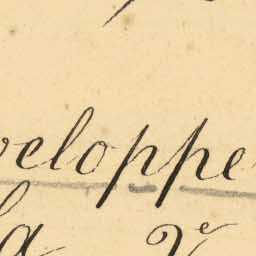 veloppe
la Ve